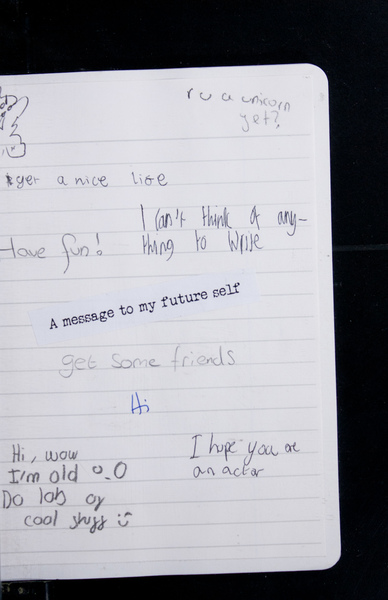 r u a unicorn
yet?
get a nice lise
I can't think of any-
thing to write
Have fun!
A message to my future self
get some friends
Hi
Hi, wow
I'm old o.O
Do lots of
cool stuff :)
I hope you are
an actor